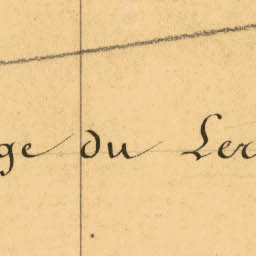 ge du Ler